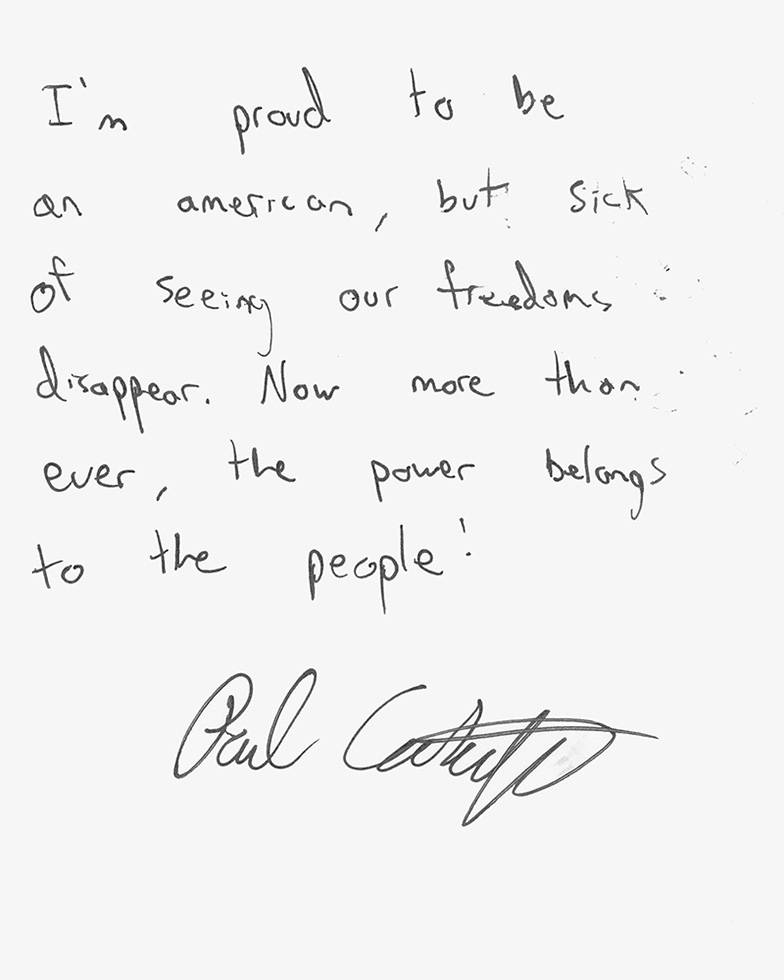 I'm proud to be
an american, but sick
of seeing our freedoms
disappear. Now more than
ever, the power belongs
to the people!
Paul